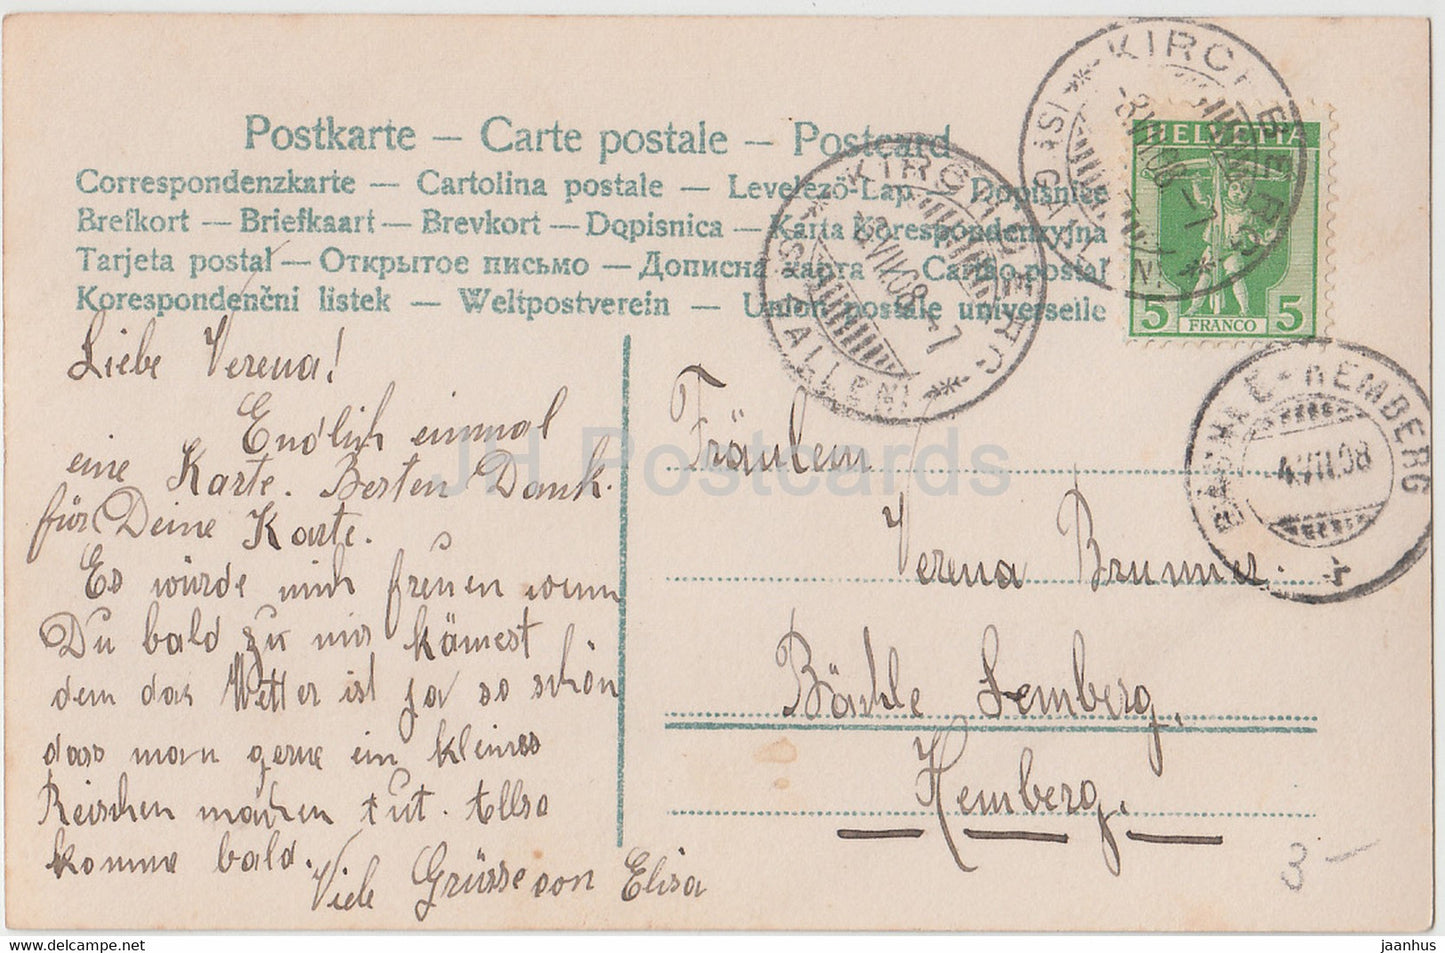 Postkarte — Carte postale — Postcard
Correspondenzkarte — Cartolina postale — Levelező-Lap — Dopisnice
Brefkort — Briefkaart — Brevkort — Dopisnica — Karta Korespondenzyjna
Tarjeta postal — Открытое письмо — Дописна карта — Cartão postal
Korespondenční listek — Weltpostverein — Union postale universelle
KIRCHBERG
(ST. GALLEN)
-3.VII.08.-7
KIRCHBERG
(ST. GALLEN)
-3.VII.08.-7
HELVETIA
5 FRANCO 5
HEMBERG
4.VII.08
Liebe Verena!
Endlich einmal
eine Karte. Besten Dank
für Deine Karte.
Es würde mich freuen wenn
Du bald zu mir kämest
denn das Wetter ist ja so schön
dass man gerne ein kleines
Reischen machen tut. Also
komme bald.
Viele Grüsse von Elisa
Fräulein
Verena Brunner.
Bächle Hemberg.
Hemberg.
3 —
JH Postcards
www.delcampe.net
jaanhus